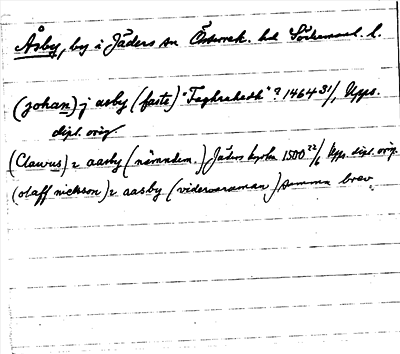 Åsby, by i Jäders sn Österrek. hd Södermanl. l.
(johan) j asby (faste) "Faghrahedh"? 1464 31/1 Upps.
dipl. orig
(Clawus) i aasby (nämndem.) Jäders kyrka 1500 22/6 Upps. dipl. orig.
(olaff nickson) i aasby (vidervaruman) samma brev.